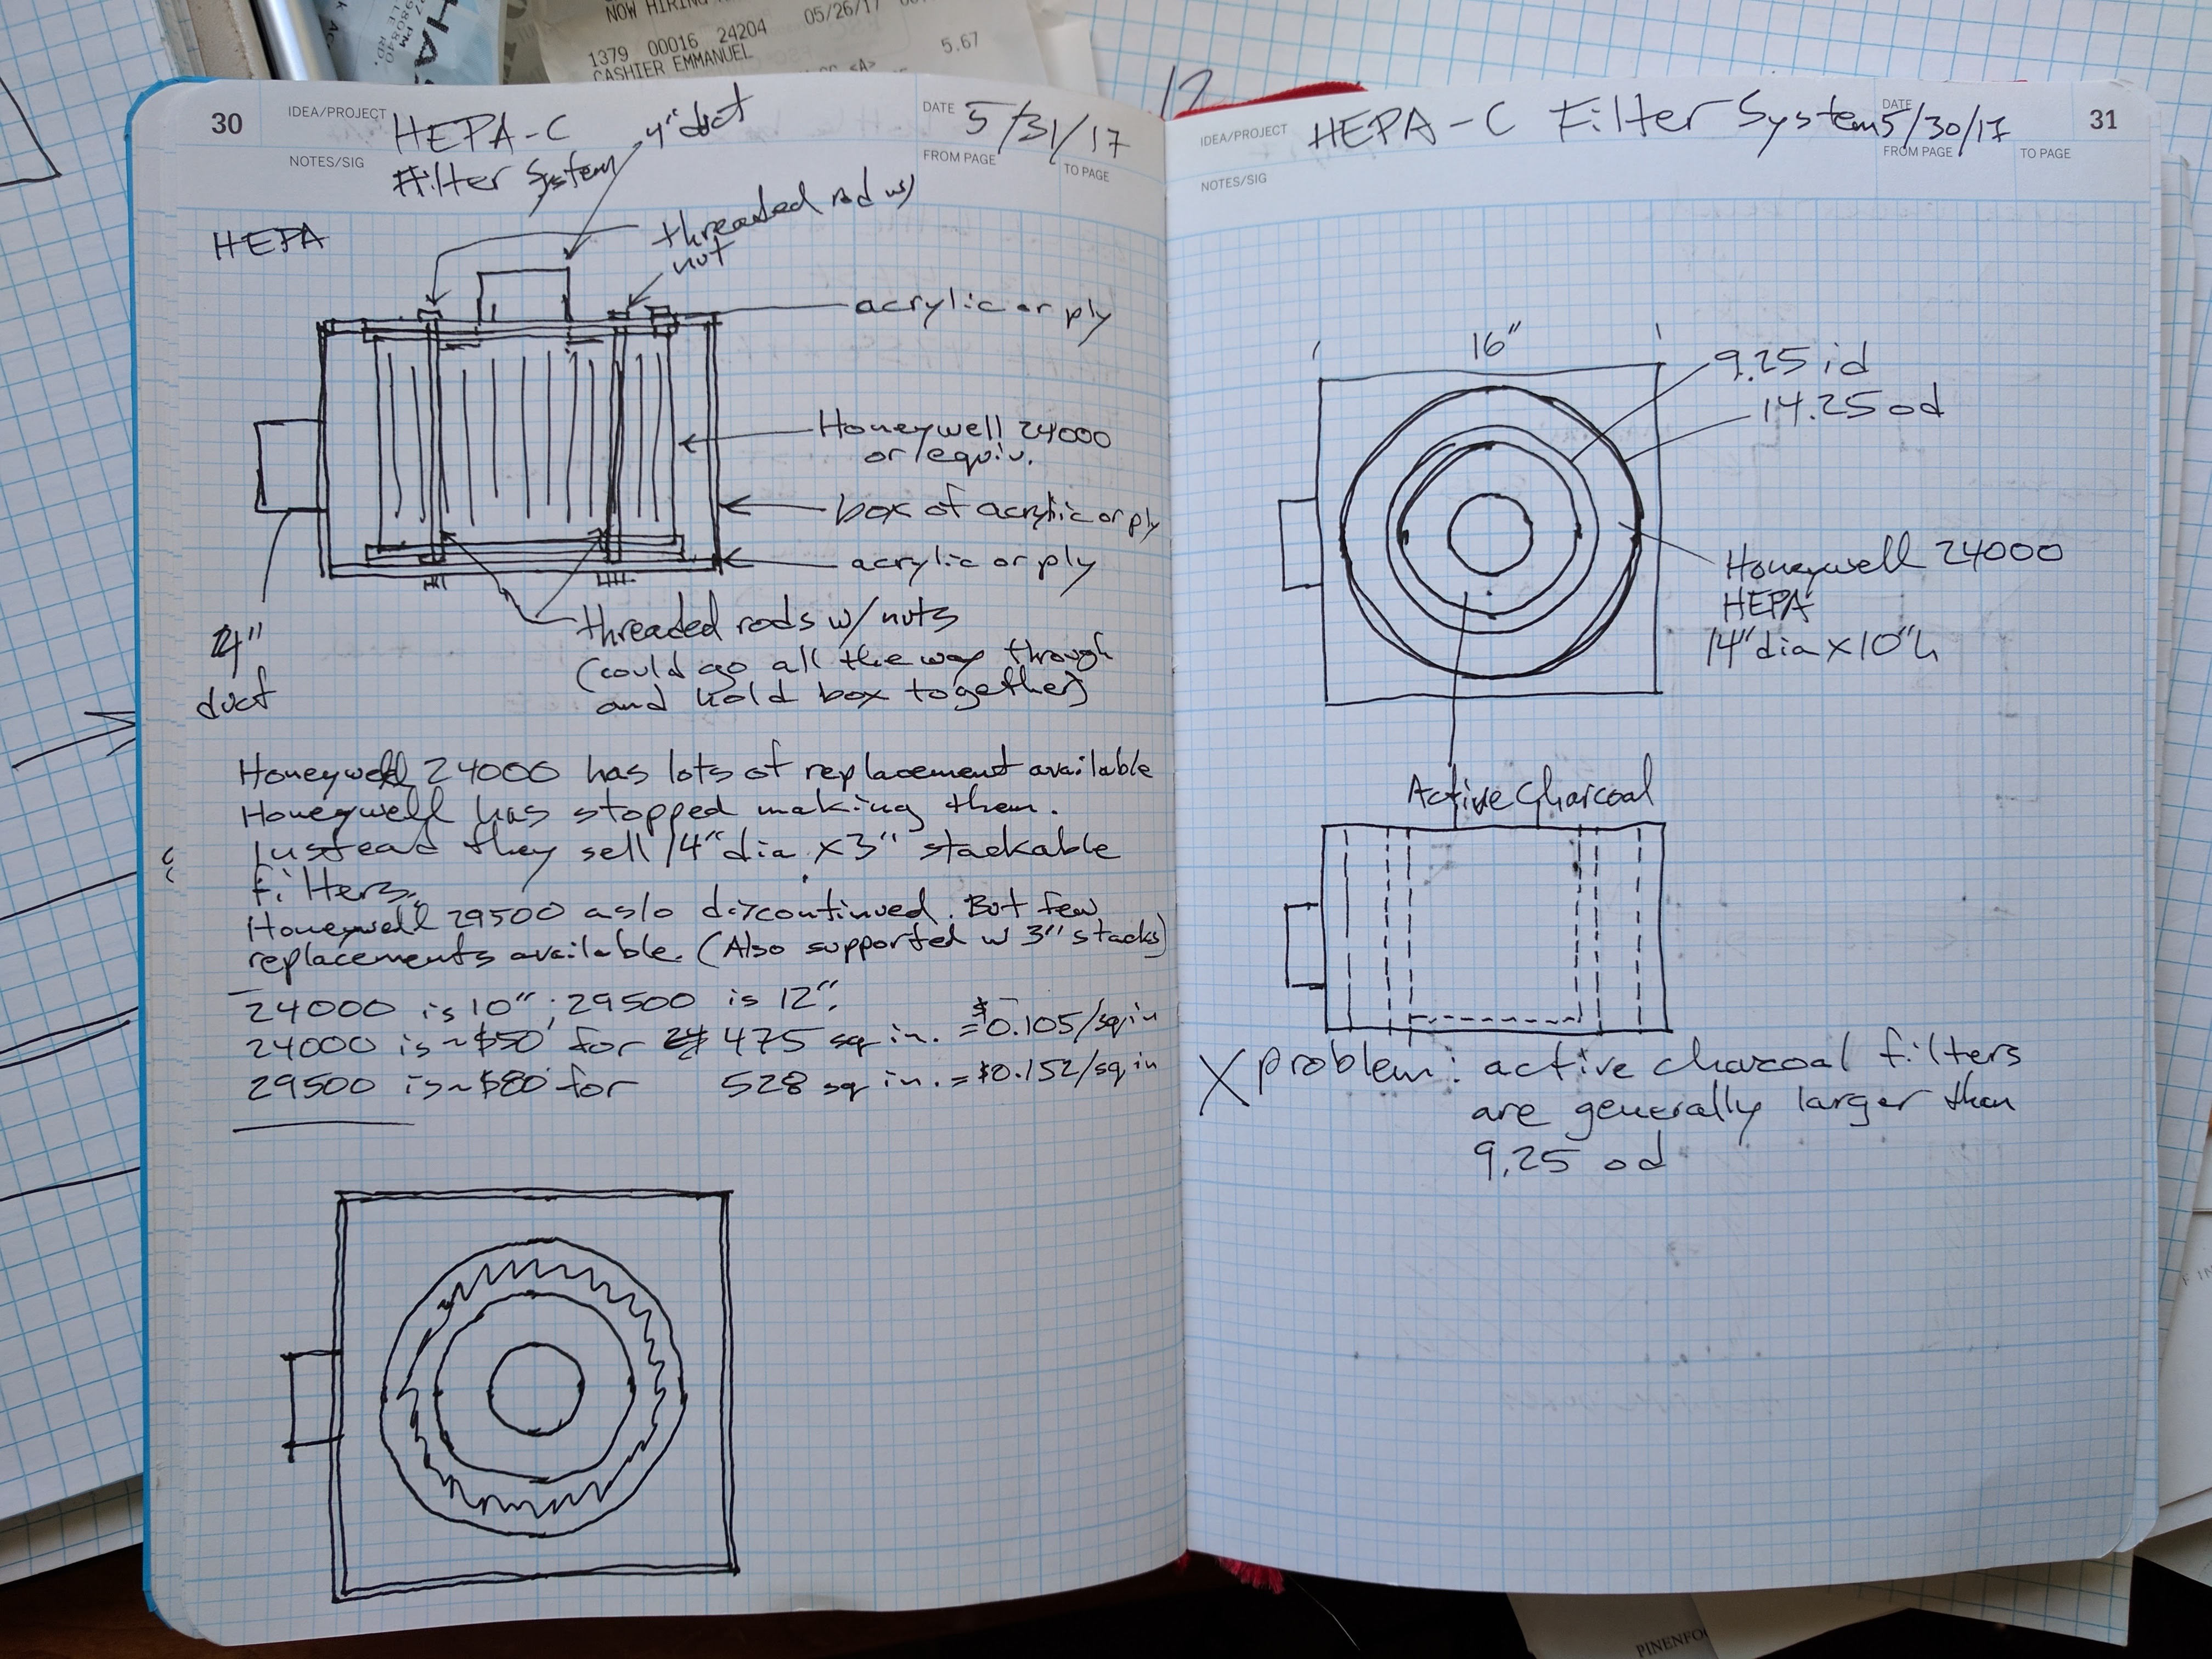 NOW HIRING
05/26/17
1379 00016 24204
CASHIER EMMANUEL
5.67
<A>
30
IDEA/PROJECT
HEPA-C
Filter System
NOTES/SIG
DATE
5/31/17
FROM PAGE
TO PAGE
4" duct
HEPA
threaded rod w/
nut
acrylic or ply
Honeywell 24000
or equiv.
box of acrylic or ply
acrylic or ply
threaded rods w/ nuts
(could go all the way through
and hold box together)
4"
duct
Honeywell 24000 has lots of replacement available
Honeywell has stopped making them.
Instead they sell 14" dia x 3" stackable
filters.
Honeywell 29500 aslo discontinued. But few
replacements available. (Also supported w 3" stacks)
24000 is 10"; 29500 is 12".
24000 is ~$50 for 475 sq in. = $0.105/sq in
29500 is ~$80 for 528 sq in. = $0.152/sq in
IDEA/PROJECT
HEPA-C Filter System
DATE
5/30/17
31
FROM PAGE
TO PAGE
NOTES/SIG
16"
9.25 id
14.25 od
Honeywell 24000
HEPA
14" dia x 10" h
Active Charcoal
X problem: active charcoal filters
are generally larger than
9.25 od
PINENFO